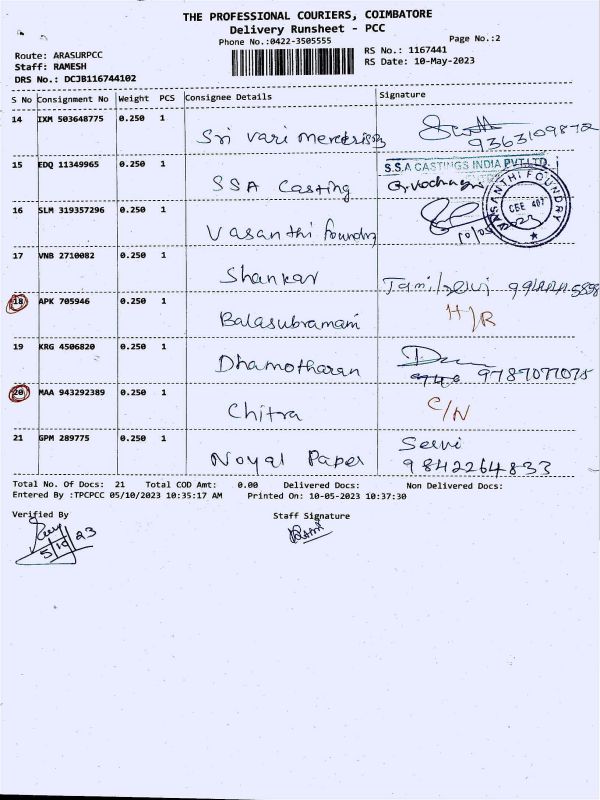 THE PROFESSIONAL COURIERS, COIMBATORE
Delivery Runsheet - PCC
Phone No.:0422-3505555
Page No.:2
Route: ARASURPCC
Staff: RAMESH
DRS No.: DCJB116744102
RS No.: 1167441
RS Date: 10-May-2023
S No Consignment No Weight PCS Consignee Details Signature
14 IXM 503648775 0.250 1
Sri Vari 9363109872
15 EDQ 11349965 0.250 1 S.S.A CASTINGS INDIA PVT.LTD.
SSA Casting
16 SLM 319357296 0.250 1 VASANTHI FOUNDRY CBE 407
Vasanthi foundry
17 VNB 2710082 0.250 1
Shankar Tamilselvi
18 APK 705946 0.250 1 H/R
Balasubramani
19 KRG 4506820 0.250 1
Dhamotharan 9787077075
20 MAA 943292389 0.250 1 C/N
Chitra
21 GPM 289775 0.250 1 Selvi
Noyal Paper 9842264833
Total No. Of Docs: 21 Total COD Amt: 0.00 Delivered Docs: Non Delivered Docs:
Entered By :TPCPCC 05/10/2023 10:35:17 AM Printed On: 10-05-2023 10:37:30
Verified By Staff Signature
5/10/23